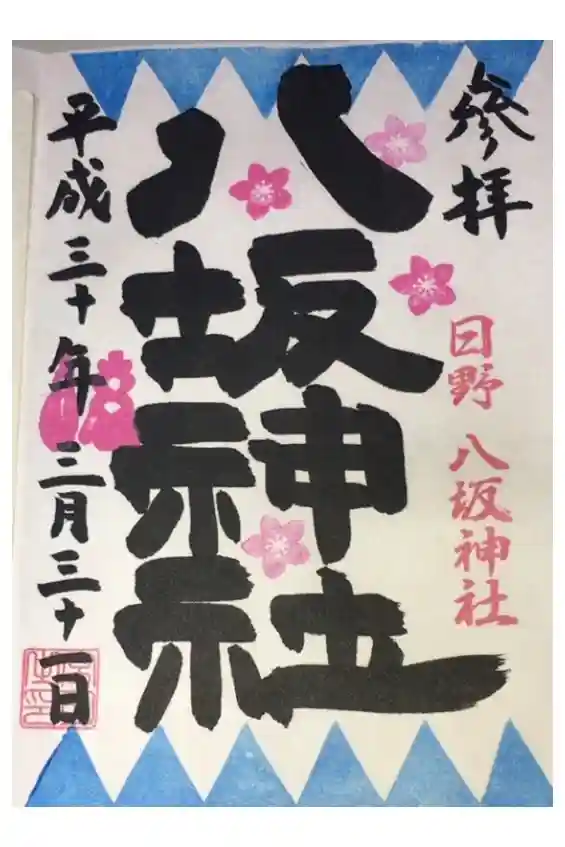 參拝
日野 八坂神社
八坂神社
平成三十年 三月三十一日